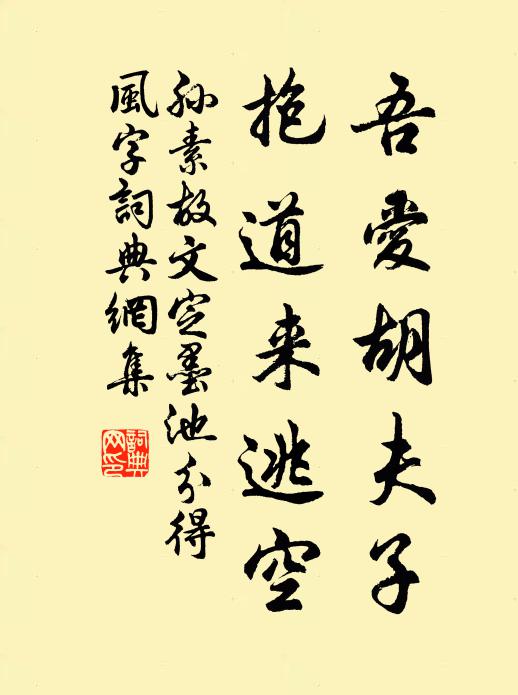 吾愛胡夫子
抱道来逃空
孙素故文定墨池分得
風字詞典網集
詞典网印